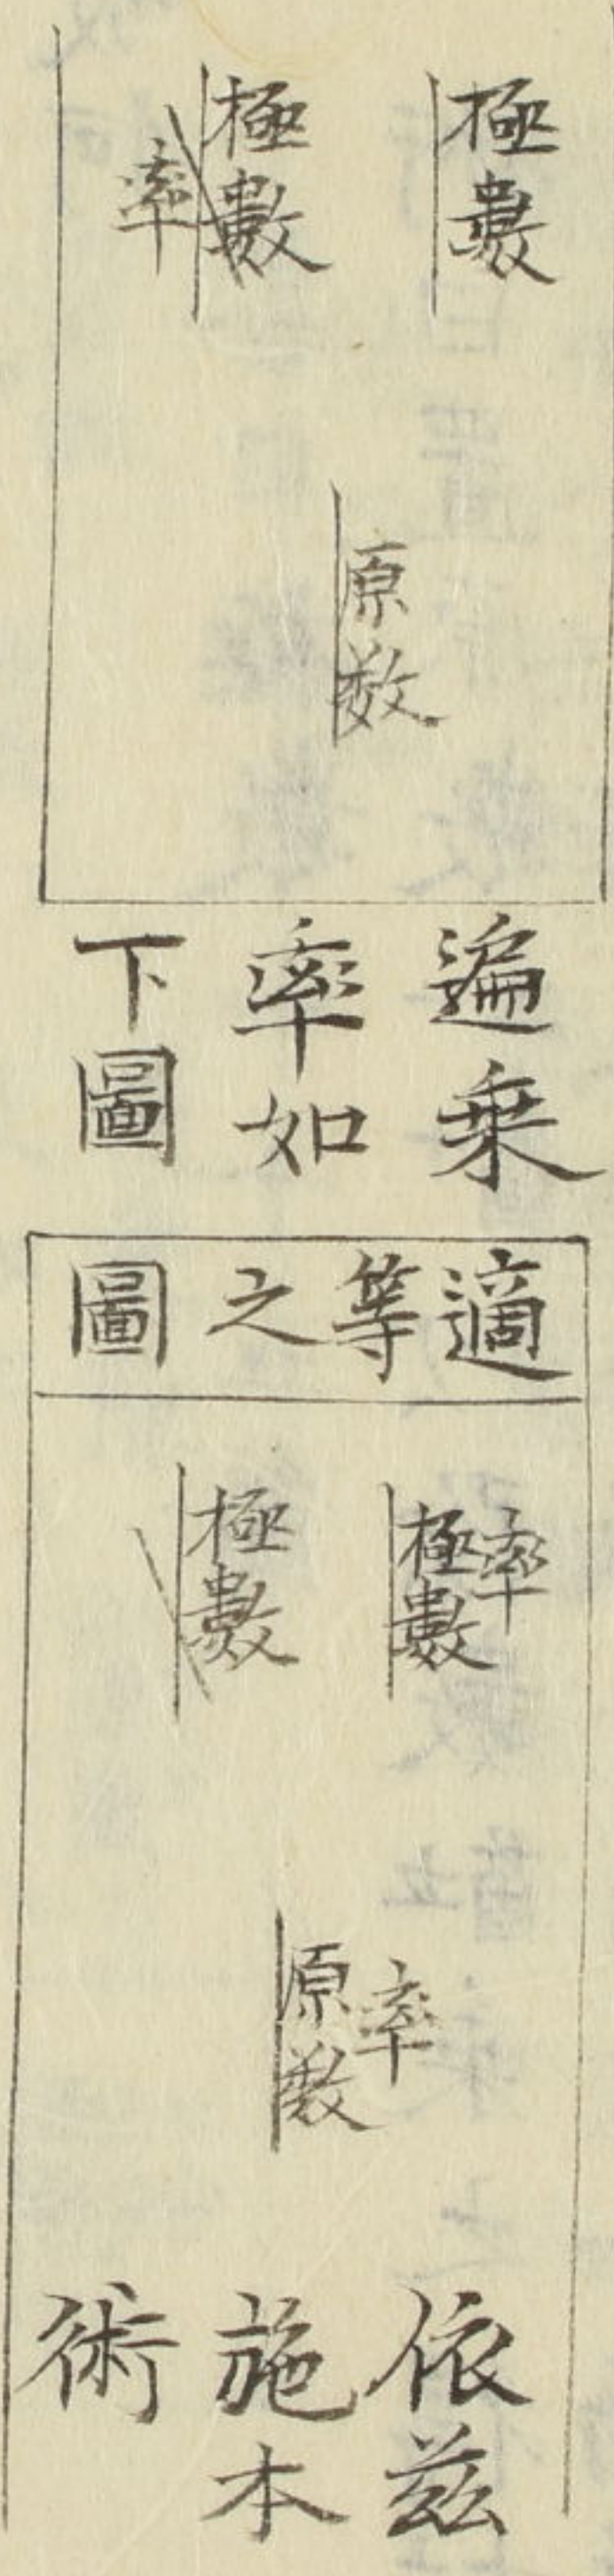 極數
極數
率
原数
遍乗
率如
下圖
適等之圖
率
極數
極數
率
原数
依茲
施本
術